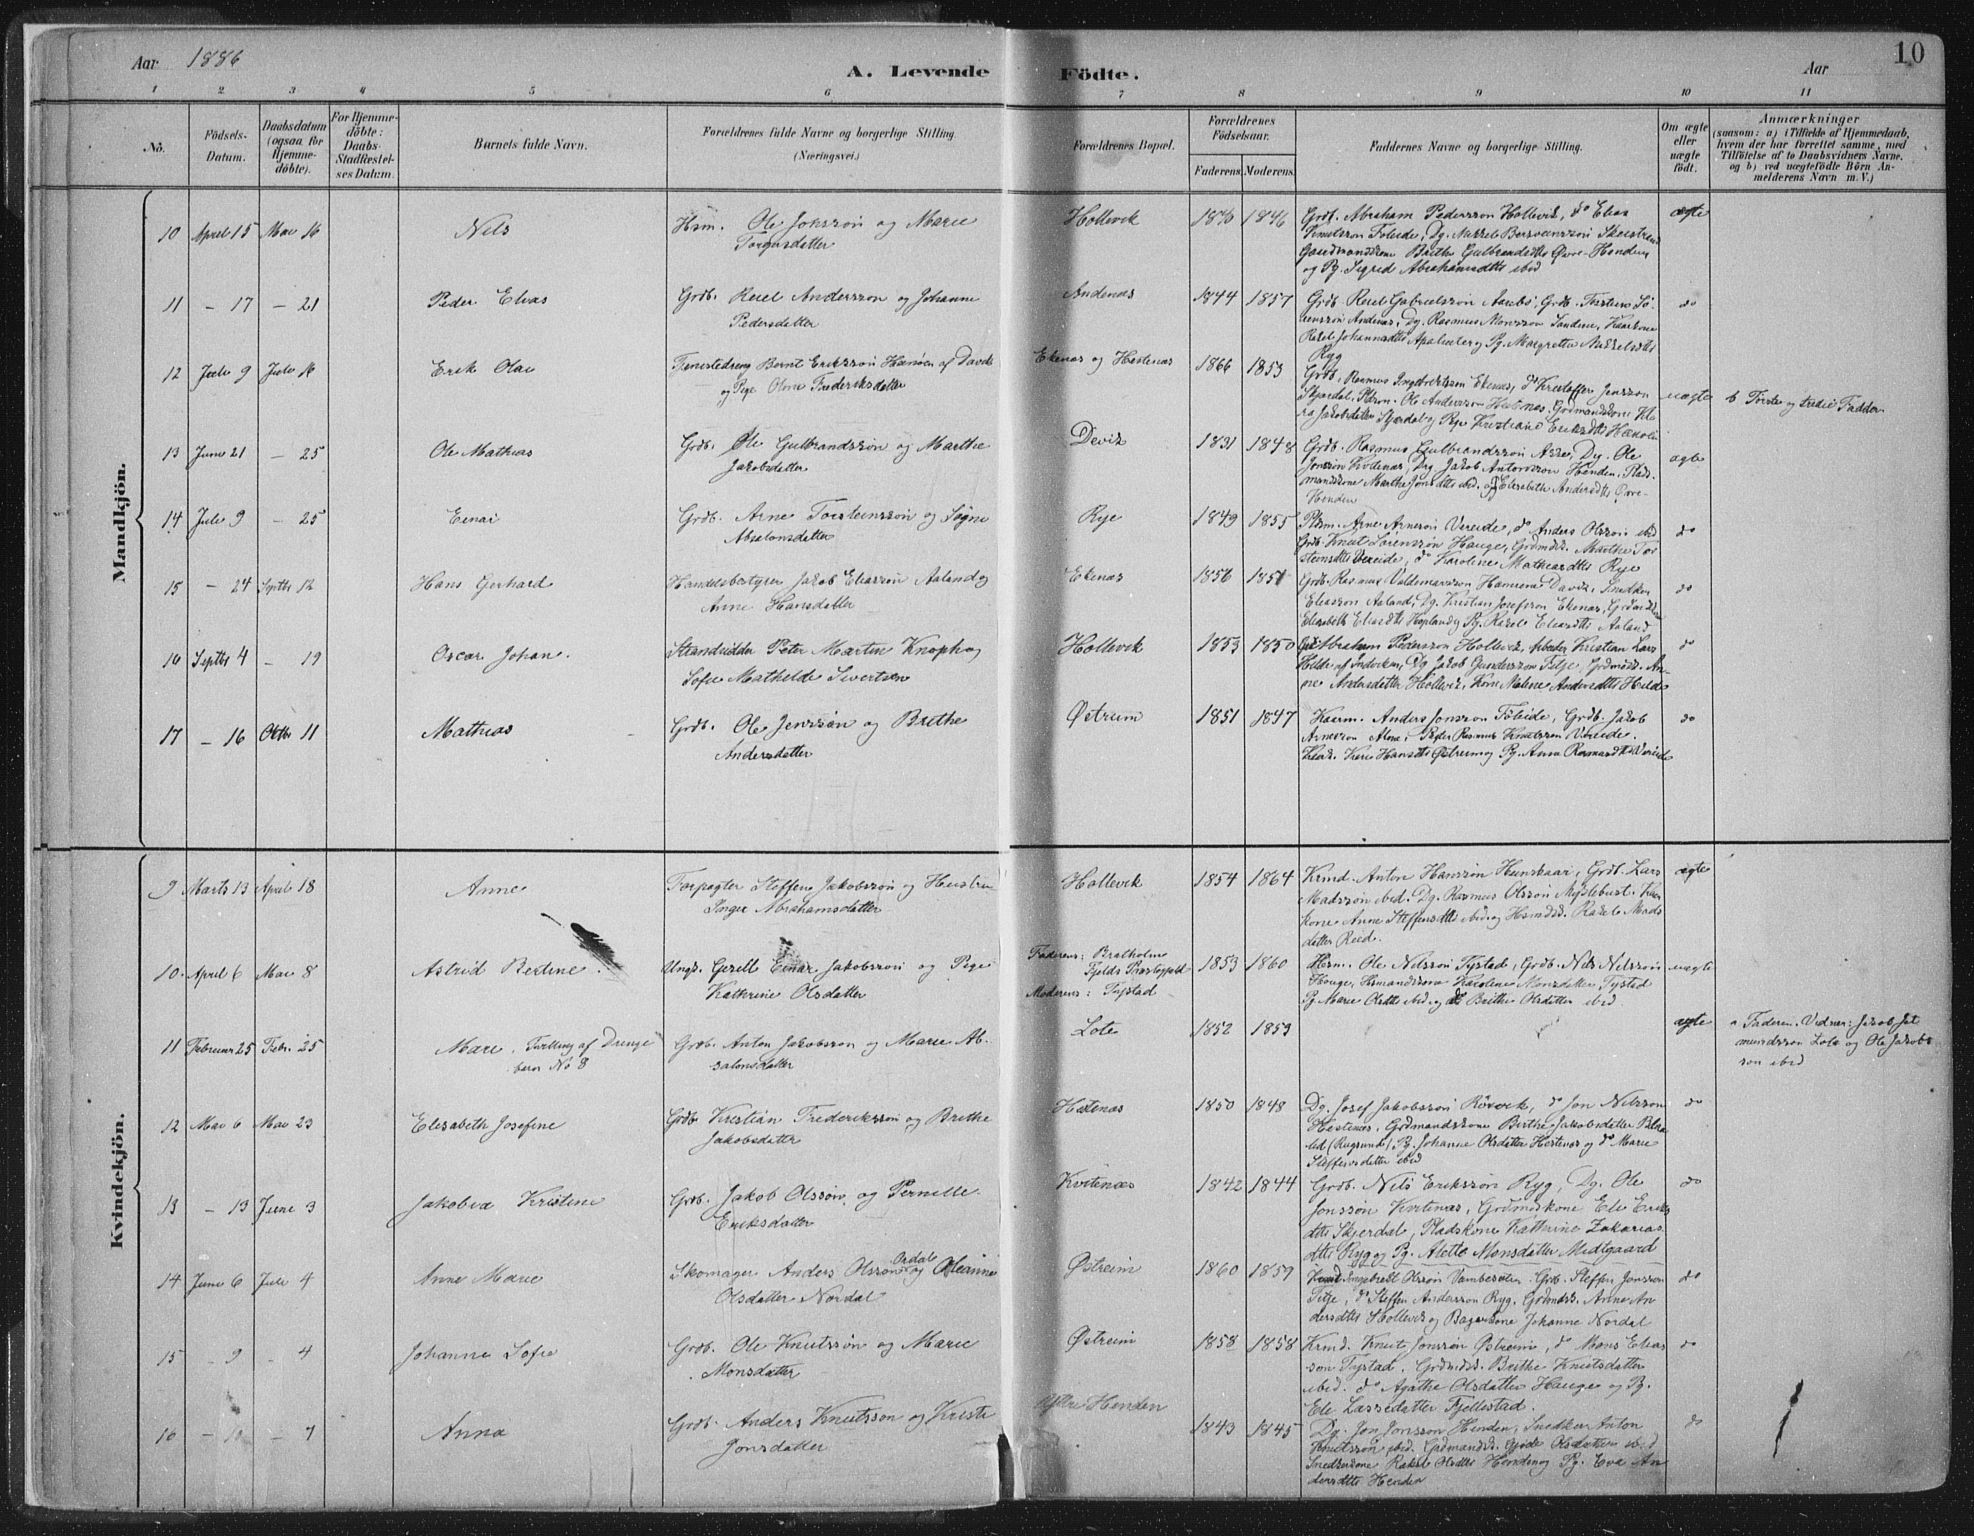 Aar 1886
A. Levende Födte.
Aar
10
1 2 3 4 5 6 7 8 9 10 11
No.
Födsels-
Datum.
Daabsdatum
(ogsaa for
Hjemme-
döbte).
For Hjemme-
döbte:
Daabs-
Stadfæstel-
ses Datum.
Barnets fulde Navn.
Forældrenes fulde Navne og borgerlige Stilling.
(Næringsvei.)
Forældrenes Bopæl.
Forældrenes
Födselsaar.
Faderens. Moderens.
Faddernes Navne og borgerlige Stilling.
Om ægte
eller
uægte
födt.
Anmærkninger
(saasom: a) i Tilfælde af Hjemmedaab,
hvem der har forrettet samme, med
Tilföielse af to Daabsvidners Navne,
og b) ved uægtefödte Börn An-
melderens Navn m. V.)
Mandkjön.
10 April 15 Mai 16 Nils
Hsm. Ole Jonssön og Marie
Torgersdatter
Hollevik 1846
Grdb. Abraham Pederssön Hollevik, do Elias
og Pg. Sigrid Abrahamsdtr ibid
ægte
11 – 17 – 21 Peder Elias
Grdb. Reiel Anderssön og Johanne
Pedersdatter
Andenæs 1844 1857
Grdb. Reiel Gabrielssön Aarebö, Grdb. Torsten Sö-
renssön Andenæs, Dg. Rasmus Monssön Sandene, Kaarkone
Ryg
do
12 Juli 9 Juli 16 Erik Olai
Tjenestedreng Bernt Erikssön Hanöen af Davik
og Pige Oline Frederiksdatter
Ekenæs og Hestenæs 1866 1853
Grdb. Rasmus Ingebrigtssön Ekenæs, do Kristoffer Jenssön
Skjerdal
uægte
b Förste og tredie Fadder
13 Juni 21 – 25 Ole Mathias
Grdb. Ole Gulbrandssön og Marthe
Jakobsdatter
Devik 1831 1848
Grdb. Rasmus Gulbrandssön Aske, Dg. Ole
Jonssön Kvitenæs, Dg. Jakob Antonssön Henden, Plads-
mandskone Marthe Jonsdtr ibid. og Elisabeth Andersdtr Övre-
Henden
ægte
14 Juli 9 – 25 Einar
Grdb. Arne Torsteinssön og Signe
Absalonsdatter
Rye 1849 1855
Plsm. Arne Arnesön Vereide, do Anders Olssön ibid
Grdb. Knut Sörenssön Hauge, Grdmdsk. Marthe Tor-
steinsdtr Vereide, do Karoline Mathiasdtr Rye
do
15 – 24 Septbr 12 Hans Gerhard
Handelsbestyrer Jakob Eliassön Aaland og
Anne Hansdatter
Ekenæs 1856
Grdb. Rasmus Valdemarssön Hamrene Davik, Snedker
Eliassön Aaland, Dg. Kristian Josefsön Ekenæs,
Elisabeth Eliasdtr Hopland og Pg. Rakel Eliasdtr Aaland
do
16 Septbr 4 – 19 Oscar Johan.
Strandsidder Peter Martin Knoph og
Sofie Mathilde Sivertsen
Hollevik 1853 1850
Grdb. Abraham Pederssön Hollevik, Arbeider Kristian Lars-
Hilde af Indviken, Dg. Jakob Gunderssön Sitje, Grdmdsk. An-
ne Andersdatter Hollevik, Kone Malene Andersdtr Hilde
do
17 – 16 Oktbr 11 Mathias
Grdb. Ole Jenssön og Brithe
Andersdatter
Østreim 1851 1847
Kaarm. Anders Jonssön Föleide, Grdb. Jakob
Arnessön Alme, Peder Rasmus Knutssön Vereide.
Kari Hansdtr Østreim og Pg. Anna Rasmusdtr Vereide
do
Kvindekjön.
9 Marts 13 April 18 Anne
Forpagter Steffen Jakobssön og Hustru
Inger Abrahamsdatter
Hollevik 1854 1864
Krmd. Anton Hanssön Hunskaar, Grdb. Lars
Madssön ibid. Dg. Rasmus Olssön Myklebust, Kaar-
kone Anne Steffensdtr ibid. og Hsmdsk. Rakel Mads-
datter Reed.
ægte
10. April 6 Mai 8 Astrid Bertine.
Ungk. Gerell Einar Jakobssön og Pige
Kathrine Olsdatter
Faderens: Bratholm
Fjelds Præstegjeld
Moderens: Tystad
1853 1860
Hsm. Ole Nilssön Tystad, Grdb. Nils Nilssön
Hauge, Hsmandskone Karoline Monsdatter Tystad
Pg. Marie Olsdtr ibid. og do Brithe Olsdatter ibid
uægte
11 Februar 25 Febr. 25 Mari. Tvilling af Drenge-
barn No 8
Grdb. Anton Jakobssön og Marie Ab-
salonsdatter
Lote 1852 1859
ægte
a Faderen. Vidner: Jakob Jet-
mundssön Lote og Ole Jakobs-
sön ibid
12 Mai 6 Mai 23 Elisabeth Josefine
Grdb. Kristian Frederikssön og Brithe
Jakobsdatter
Hestenæs 1850 1848
Dg. Josef Jakobssön Rövik, do Jon Nilssön
Hestenæs, Grdmandskone Birthe Jakobsdatter
(Rugsund), Pg. Johanne Olsdatter Hestenæs og do Marie
Steffensdatter ibid
do
13 – 13 Juni 3 Jakobia Kristine
Grdb. Jakob Olssön og Pernille
Eriksdatter
Kvitenæs 1842 1844
Grdb. Nils Erikssön Ryg, Dg. Ole
Jonssön Kvitenæs, Grdmdskone Eli Eriks-
dtr Skjerdal, Pladskone Kathrine Zakarias-
dtr Ryg og Pg. Alette Monsdatter Midtgaard
do
14 Juni 6 Juli 4 Anne Marie
Skomager Anders Olssön Ordal og Oleanne
Olsdatter Nordal
Østreim 1860 1859
Ingebret Olssön Vambeseter, Grdb. Steffen Jonssön
Sitje, do Steffen Anderssön Ryg, Grdmdsk. Anne An-
dersdtr Hollevik og Bagerkone Johanne Nordal
do
15 – 9 – 4 Johanne Sofie
Grdb. Ole Knutssön og Marie
Monsdatter
Østreim 1858 1858
Krmd. Knut Jonssön Østreim, do Mons Elias-
sön Tystad, Grdmdsk. Brithe Knutsdatter
ibid. do Agathe Olsdatter Hauge og Pg.
Eli Larsdatter Fjellestad.
do
16 – 10 – 7 Anna
Grdb. Anders Knutssön og Kristi
Jonsdatter
Ytre Henden 1843 1845
Dg. Jon Jonssön Henden, Snedker Anton
Knutssön ibid. Grdmandsk. Olsdatter ibid
Snedkerkone Rakel Olsdtr Henden og Pg. Eva An-
dersdtr Henden
do